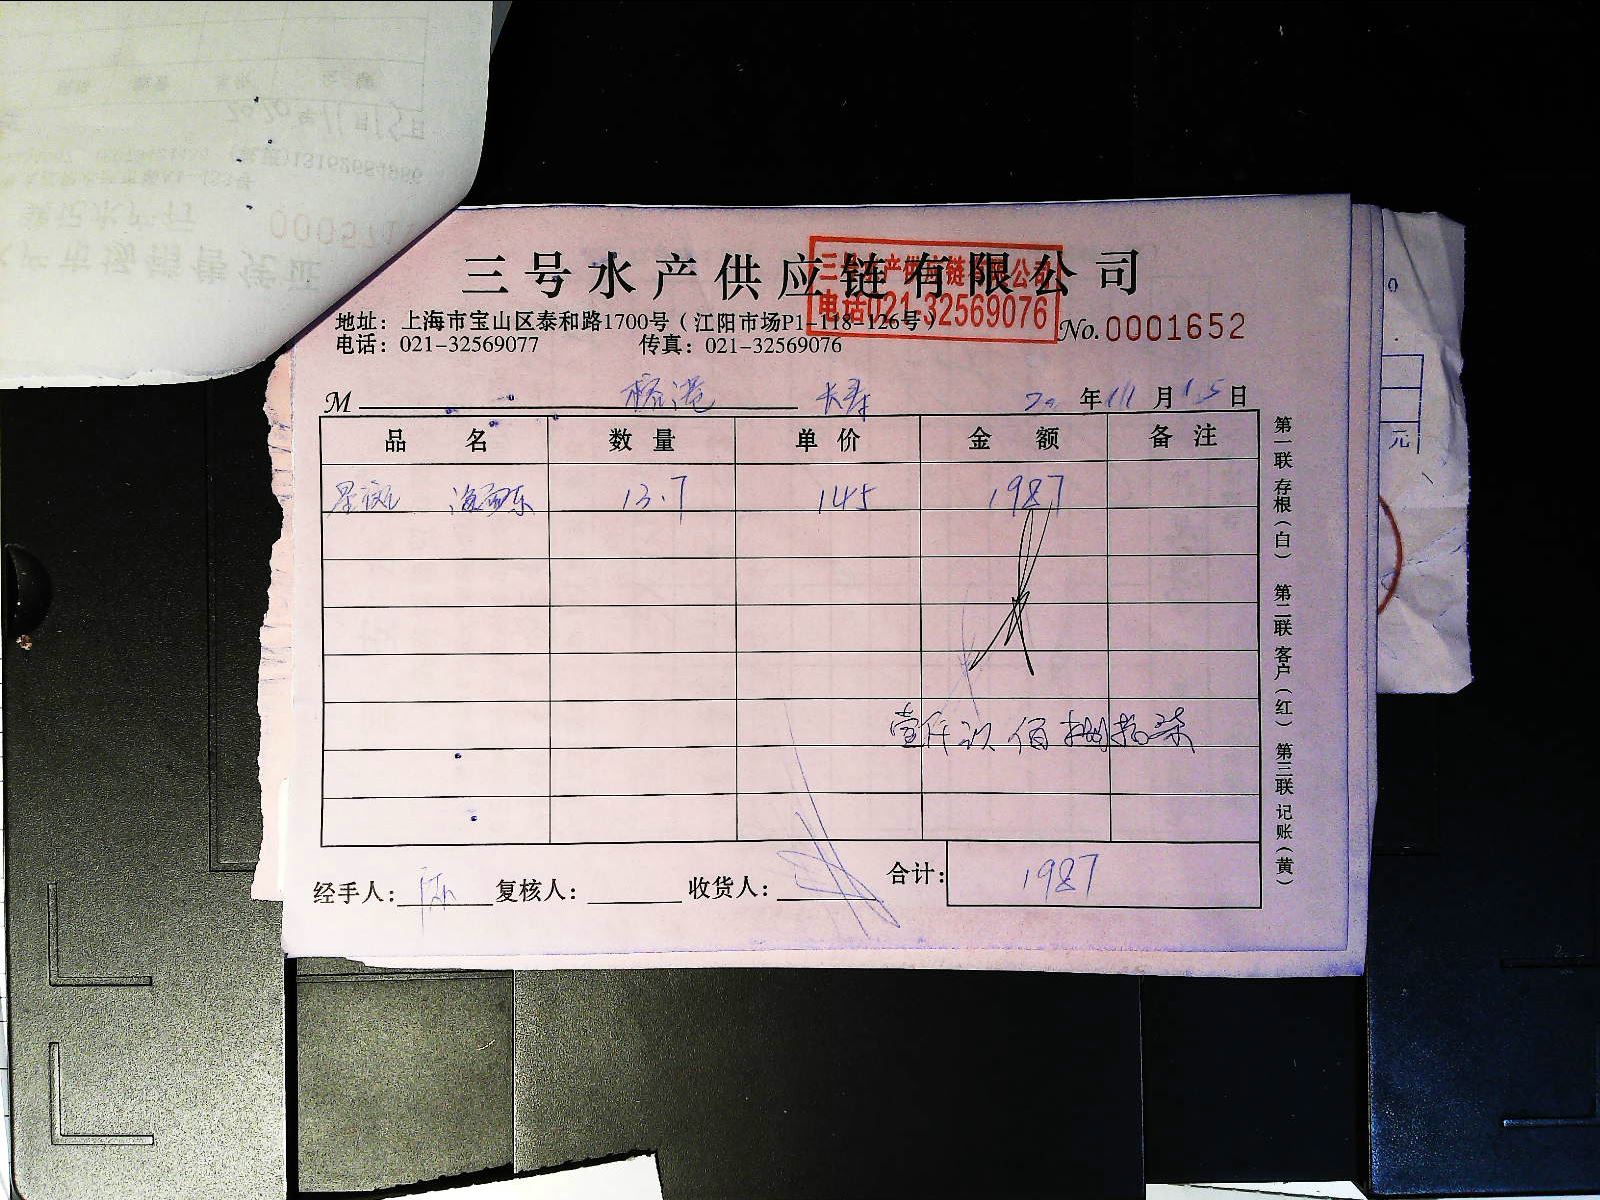 三号水产供应链有限公司
三号水产供应链有限公司
电话021-32569076
地址：上海市宝山区泰和路1700号（江阳市场P1-118-126号）
No.0001652
电话：021-32569077 传真：021-32569076
M 榕港 长寿 20 年 11 月 15 日
品名 数量 单价 金额 备注
星斑 13.7 145 1987
壹仟玖佰捌拾柒
经手人： 陈 复核人： 收货人： 合计： 1987
第一联 存根（白） 第二联 客户（红） 第三联 记账（黄）
元